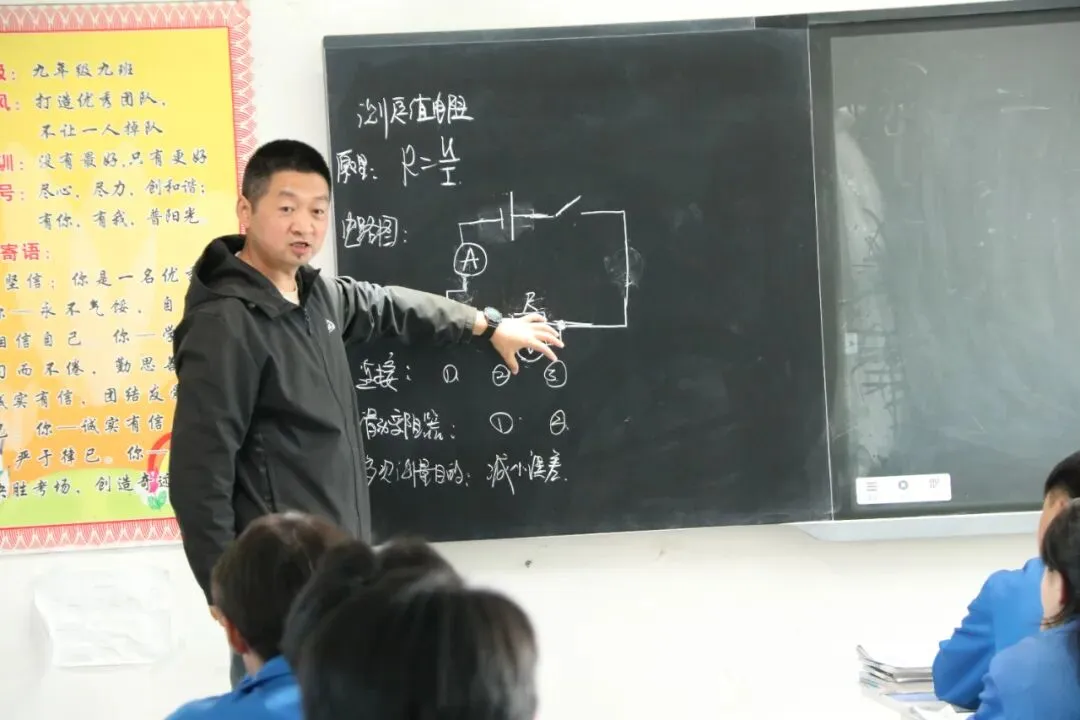 ：九年级九班
：打造优秀团队，
不让一人掉队
训：没有最好，只有更好
号：尽心、尽力、创和谐；
有你、有我、普阳光
寄语：
坚信：你是一名优
你—永不气馁、自
相信自己 你—学
而不倦、勤思善
诚实有信、团结友
你—诚实有信
严于律己、你—
决胜考场、创造奇迹
测定值电阻
原理：R=U/I
电路图：
A
R
连接：① ② ③
滑动变阻器：① ②
多次测量目的：减小误差.